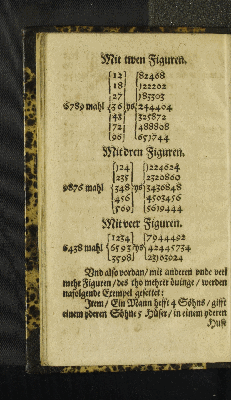 Mit twen Figuren.
12 82468
18 122202
27 183303
6789 mahl 36 ys 244404
48 325872
72 488808
96 651744
Mit dren Figuren.
124 1224624
235 2320860
9876 mahl 348 ys 3436848
456 4503456
569 5619444
Mit veer Figuren.
1234 7944492
6438 mahl 6593 ys 42445734
3598 23163024
Vnd also vordan / mit anderen vnde veel
mehr Figuren / des tho mehrer duinge / werden
nafolgende Exempel gesettet:
Item / Ein Mann hefft 4 Söhns / gifft
einem yderen Söhne 5 Hüser / in einem yderen
Huse